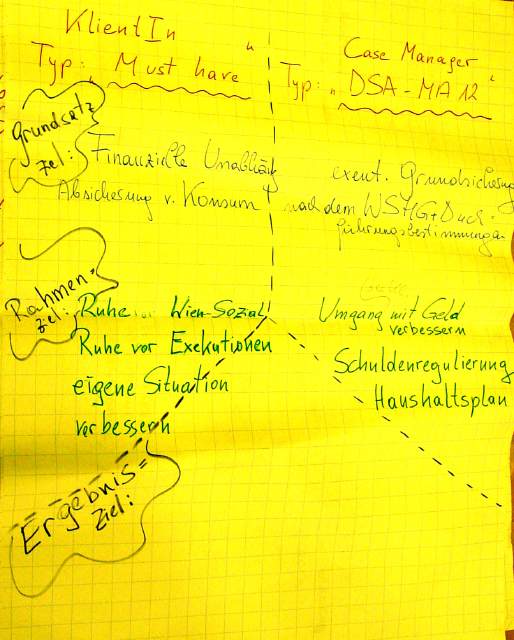 KlientIn
Typ: „Must have"
Case Manager
Typ: „DSA - MA 12"
Grundsatz
ziel:
Finanzielle Unabhäng
Absicherung v. Konsum
Grundsicherung
nach dem WSHG + Durch-
führungsbestimmungen
Rahmen-
ziel:
Ruhe vor Wien-Sozial
Ruhe vor Exekutionen
eigene Situation
verbessern
Umgang mit Geld
verbessern
Schuldenregulierung
Haushaltsplan
Ergebnis=
ziel: